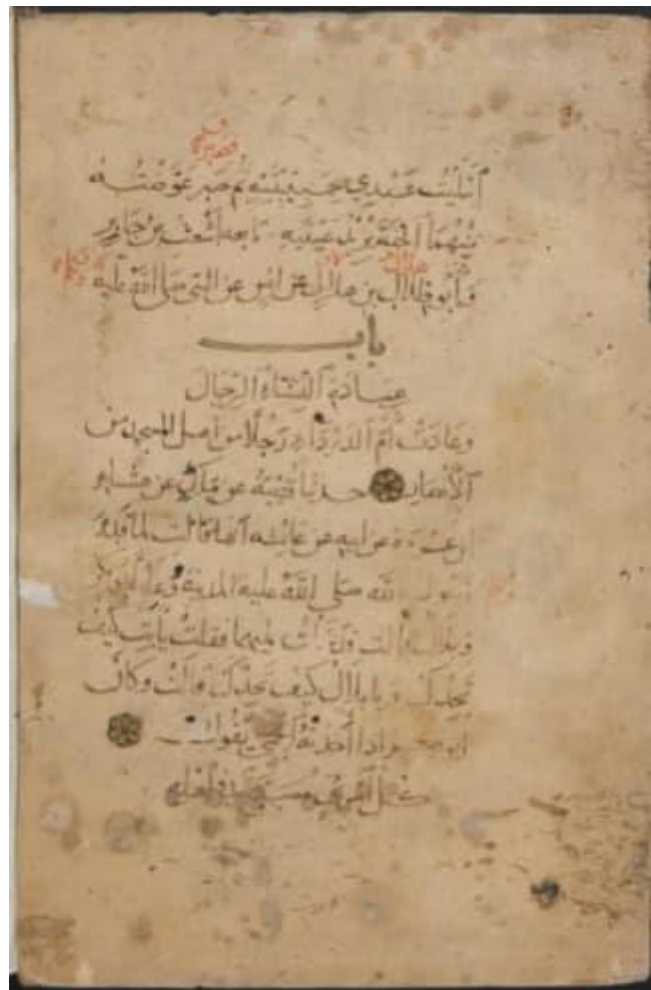 ابتليت عبدي بحبيبتيه ثم صبر عوضته
منهما الجنة يريد عينيه تابعه أشعث بن جابر
وأبو ظلال بن هلال عن انس عن النبي صلى الله عليه
باب
عيادة النساء الرجال
وعادت أم الدرداء رجلا من اهل المسجد من
الأنصار حدثنا قتيبة عن مالك عن هشام
بن عروة عن ابيه عن عائشة أنها قالت لما قدم
رسول الله صلى الله عليه المدينة وعك أبو بكر
وبلال قالت فدخلت عليهما فقلت يا أبت كيف
تجدك ويا بلال كيف تجدك قالت وكان
ابو بكر إذا أخذته الحمى يقول
كل امرئ مصبح في أهله